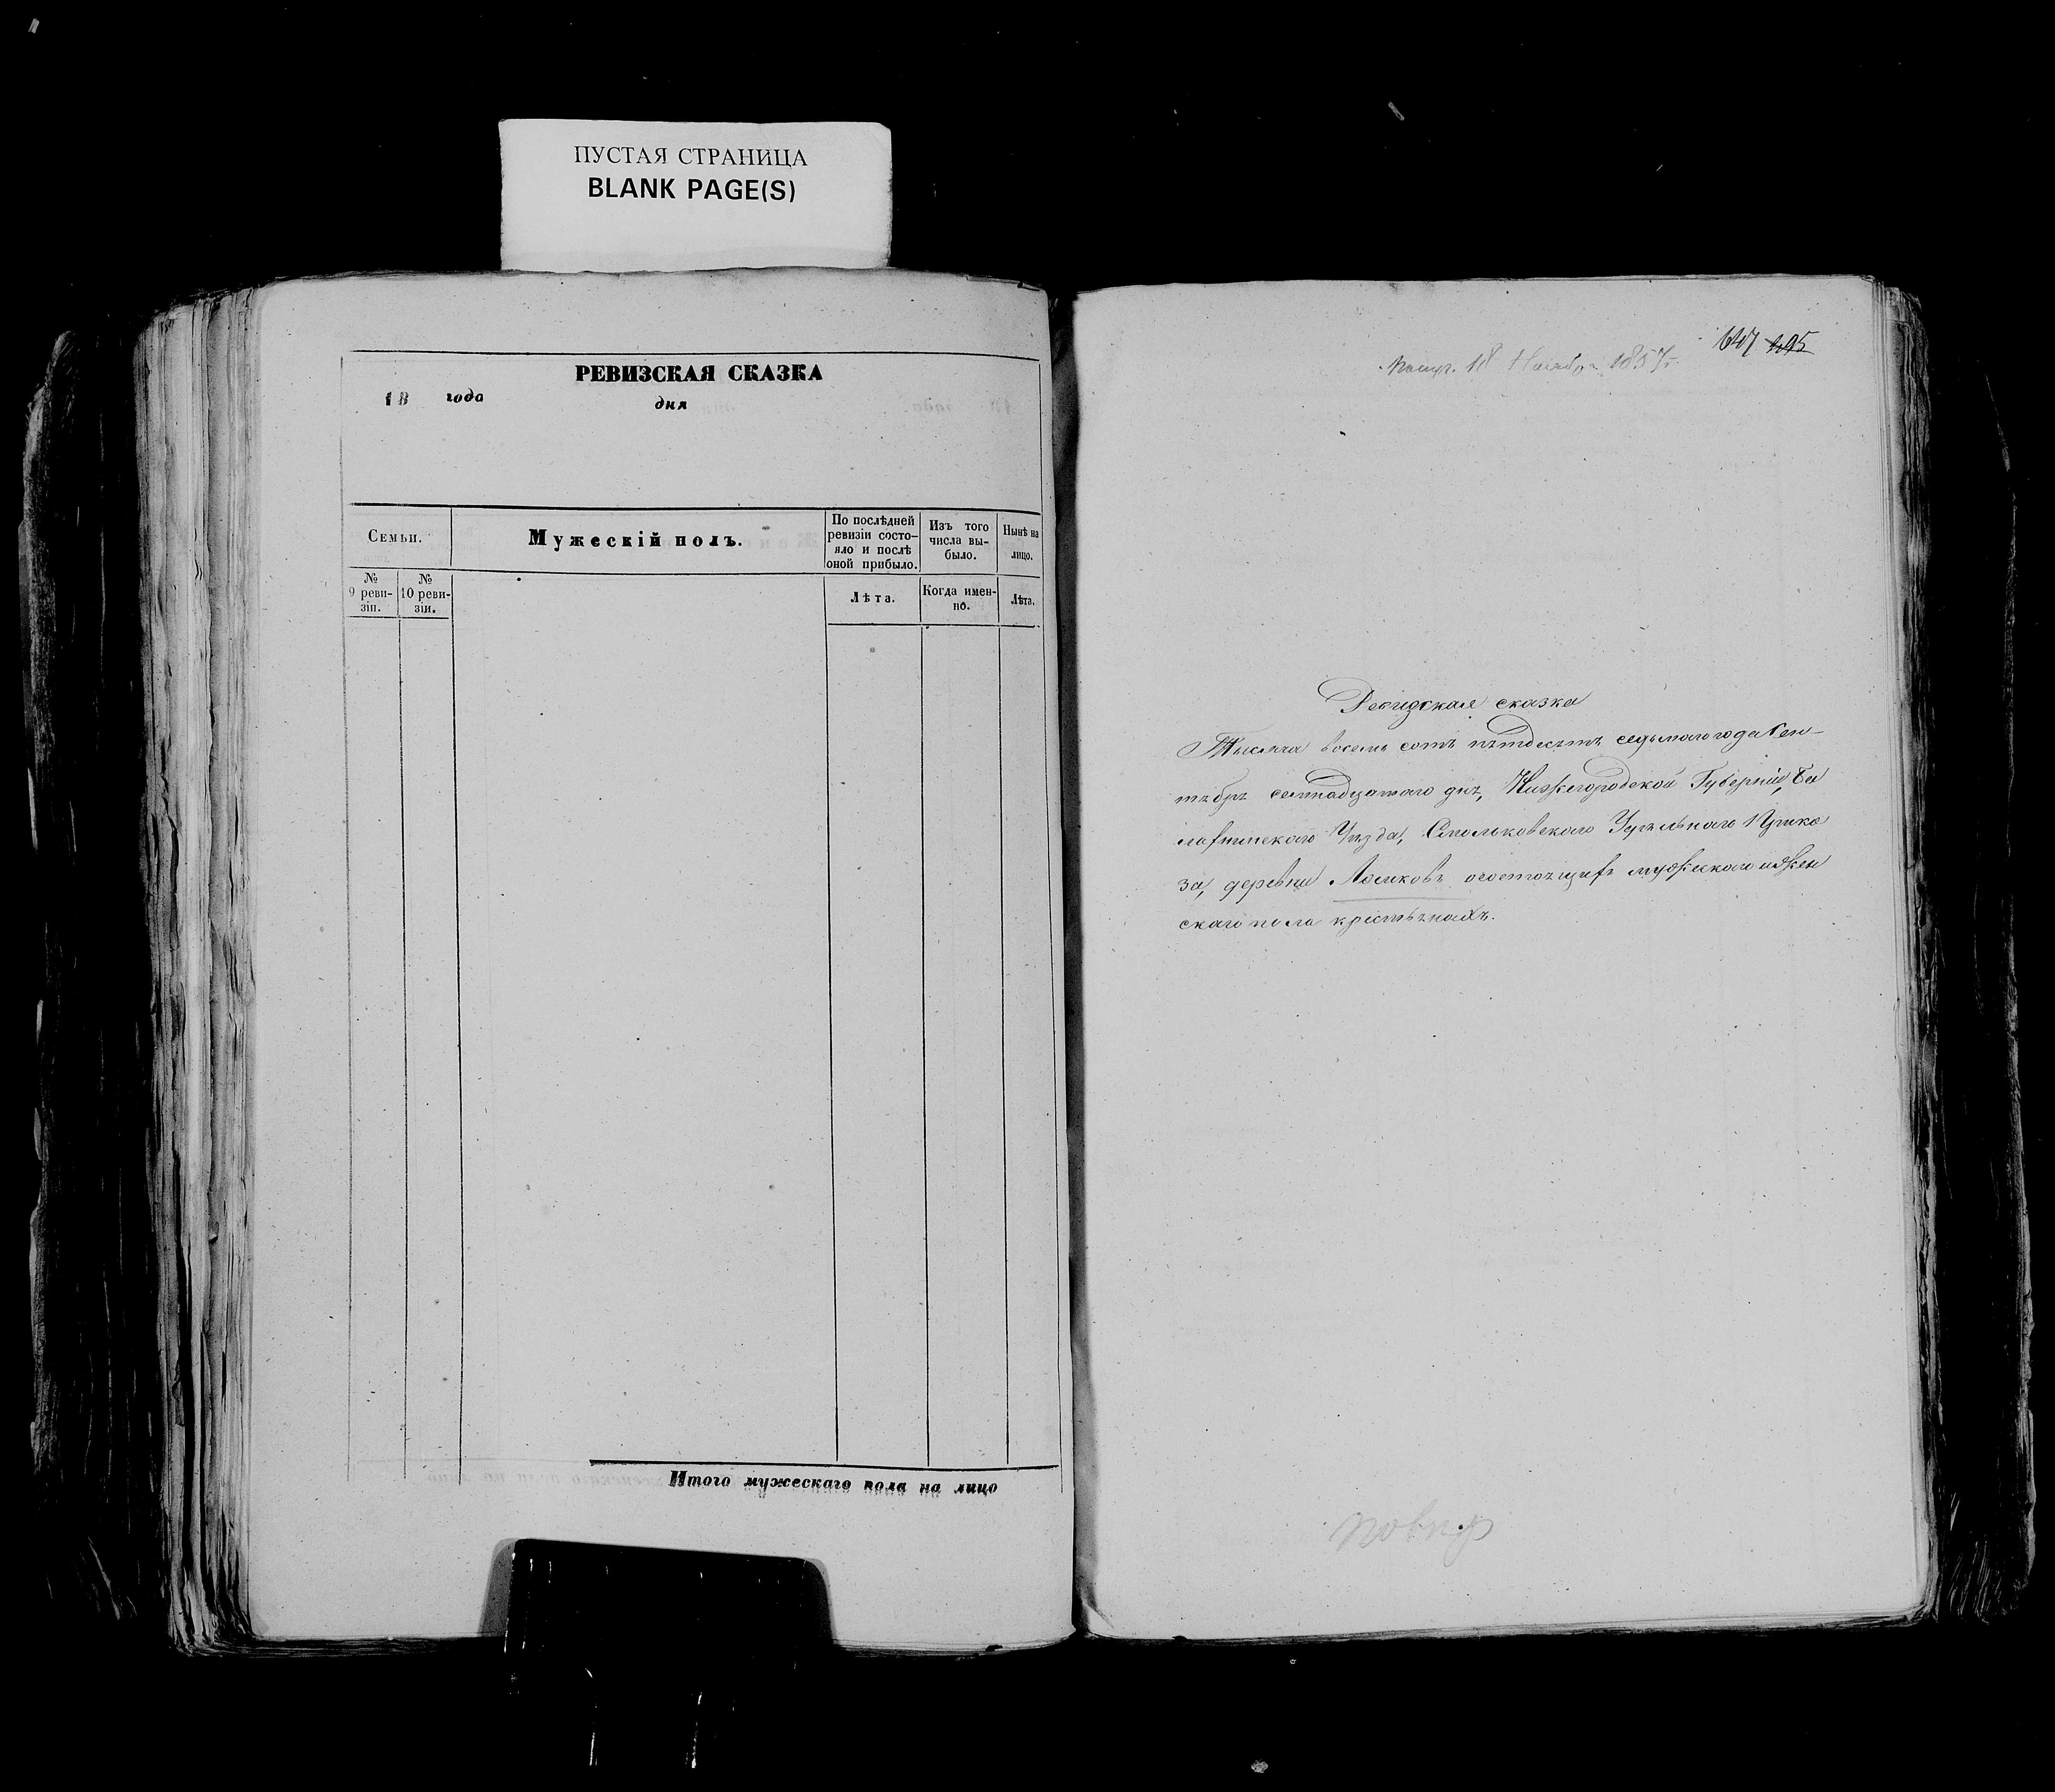 ПУСТАЯ СТРАНИЦА
BLANK PAGE(S)
РЕВИЗСКАЯ СКАЗКА
18 года дня
Семьи.
Мужескій полъ.
По послѣдней ревизіи состо-
яло и послѣ
оной прибыло.
Изъ того
числа вы-
было.
Нынѣ на
лицо.
№
9 реви-
зіи.
№
10 реви-
зіи.
Лѣта.
Когда имен-
но.
Лѣта.
Итого мужескаго пола на лицо
647 495
Получ. 18 Ноября 1857 г.
Ревизская сказка
Тысяча восемь сотъ пятдесятъ седьмаго года Сен-
тября семнадцатого дня, Нижегородской Губерніи, Ба
лахнинскаго Уѣзда, Удѣльнаго Прика
за, деревни о состоящихъ мужескаго и жен
скаго пола крестьянахъ.